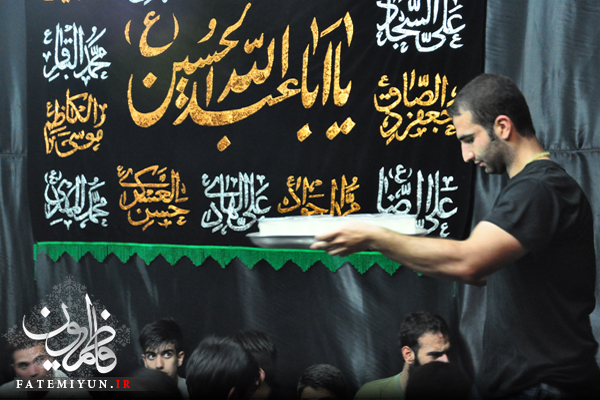 علی السجاد ع
محمد الباقر ع
یا اباعبدالله الحسین (ع)
جعفر الصادق ع
موسی الکاظم ع
علی الرضا ع
محمد الجواد ع
علی الهادی ع
حسن العسکری ع
محمد المهدی ع
فاطمیون
FATEMIYUN.IR